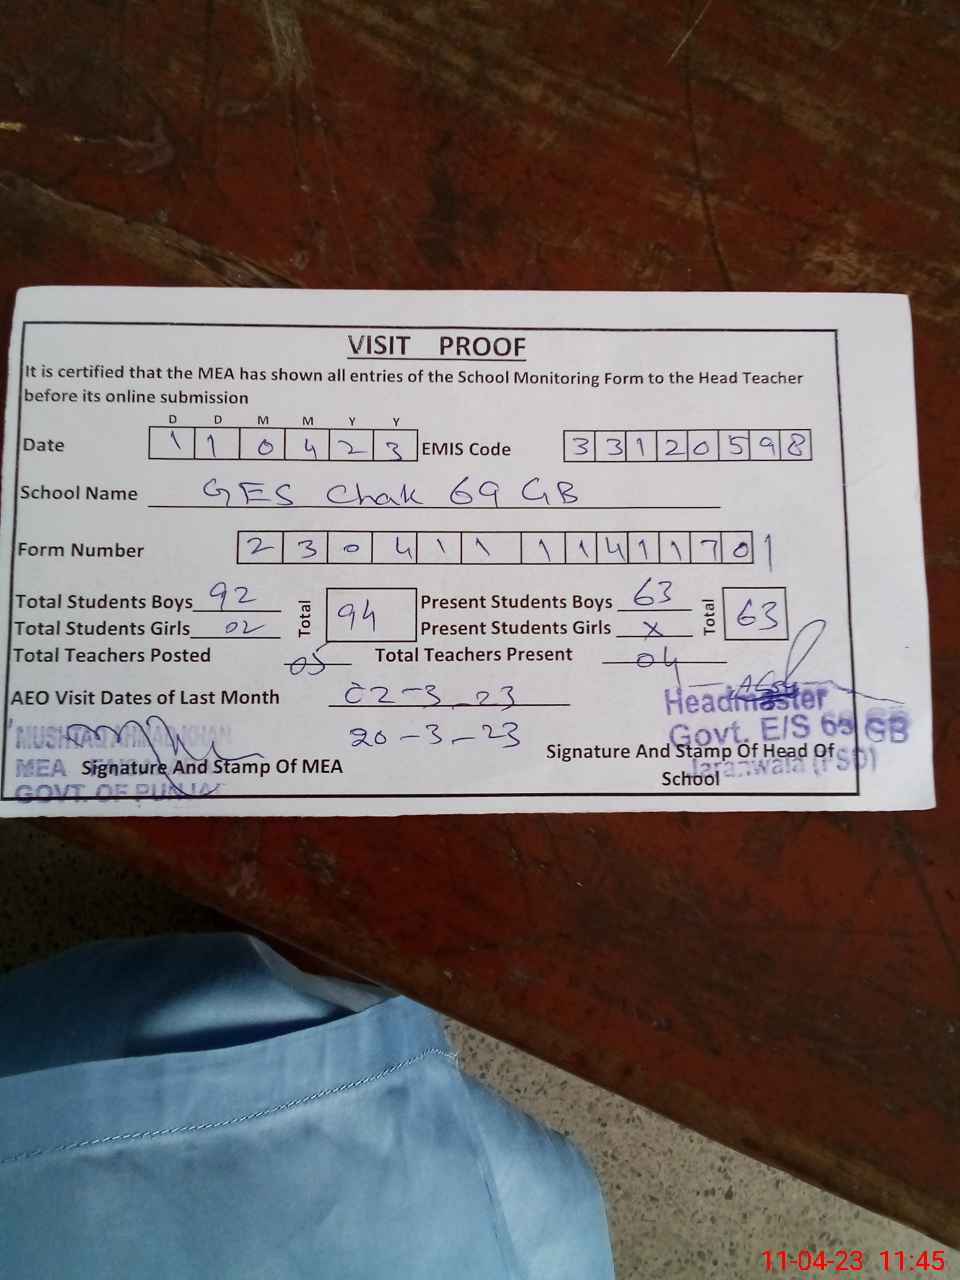 VISIT PROOF
It is certified that the MEA has shown all entries of the School Monitoring Form to the Head Teacher
before its online submission
D D M M Y Y
Date 1 1 0 4 2 3 EMIS Code 3 3 1 2 0 5 9 8
School Name GES Chak 69 GB
Form Number 2 3 0 4 1 1 1 1 4 1 1 7 0 1
Total Students Boys 92 Total 94 Present Students Boys 63 Total 63
Total Students Girls 02 Present Students Girls X
Total Teachers Posted 05 Total Teachers Present 04
AEO Visit Dates of Last Month 02-3-23
20-3-23
Headmaster
Govt. E/S 69 GB
Jaranwala (FSD)
Signature And Stamp Of Head Of
School
MUSHTAQ AHMAD KHAN
MEA
GOVT. OF PUNJAB
Signature And Stamp Of MEA
11-04-23 11:45